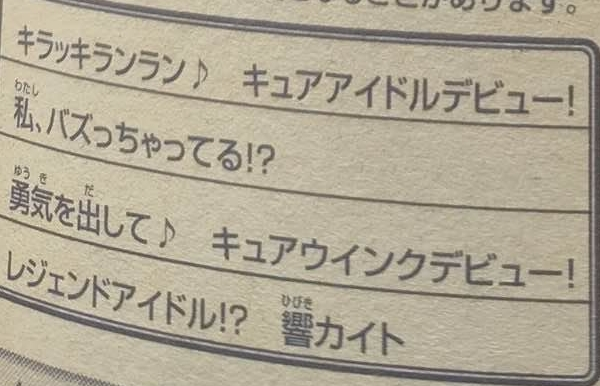 があります。
キラッキランラン♪　キュアアイドルデビュー!
私、バズっちゃってる!?
勇気を出して♪　キュアウインクデビュー!
レジェンドアイドル!?　響カイト